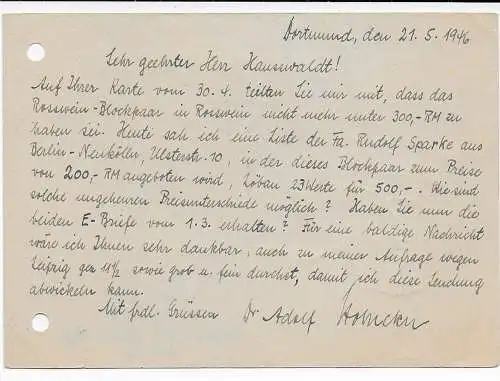 Dortmund, den 21.5.1946
Sehr geehrter Herr Hauswaldt!
Auf Ihrer Karte vom 30.4. teilten Sie mir mit, dass das
Rosswein-Blockpaar in Rosswein nicht mehr unter 300,-RM zu
haben sei. Heute sah ich eine Liste der Fa. Rudolf Sparke aus
Berlin-Neukölln, Ulsterstr. 10, in der dieses Blockpaar zum Preise
von 200,-RM angeboten wird, Löbau 23 Werte für 500,-. Wie sind
solche ungeheuren Preisunterschiede möglich? Haben Sie nun die
beiden E-Briefe vom 1.3. erhalten? Für eine baldige Nachricht
wäre ich Ihnen sehr dankbar, auch zu meiner Anfrage wegen
Leipzig gez 11 1/2 sowie grob u. fein durchst, damit ich diese Sendung
abwickeln kann.
Mit frdl. Grüssen Dr Adolf